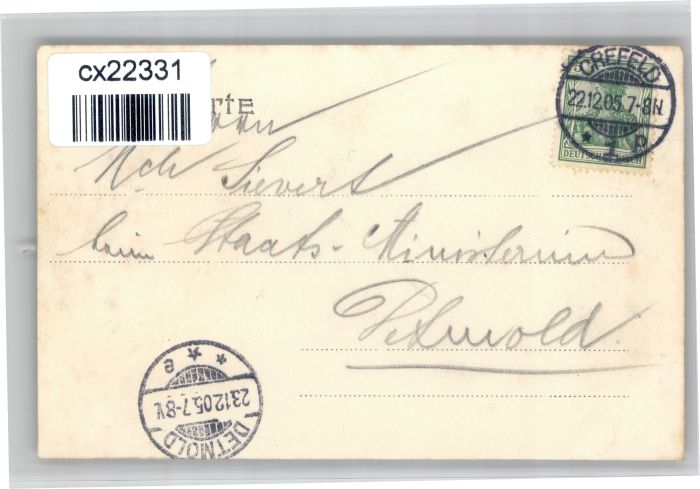 cx22331
rte
CREFELD
22.12.05.7-8N.
* 1 p
DEUTSCHES REICH
Sievert
beim Staats-Ministerium
Detmold.
DETMOLD
23.12.05.7-8V.
* * e